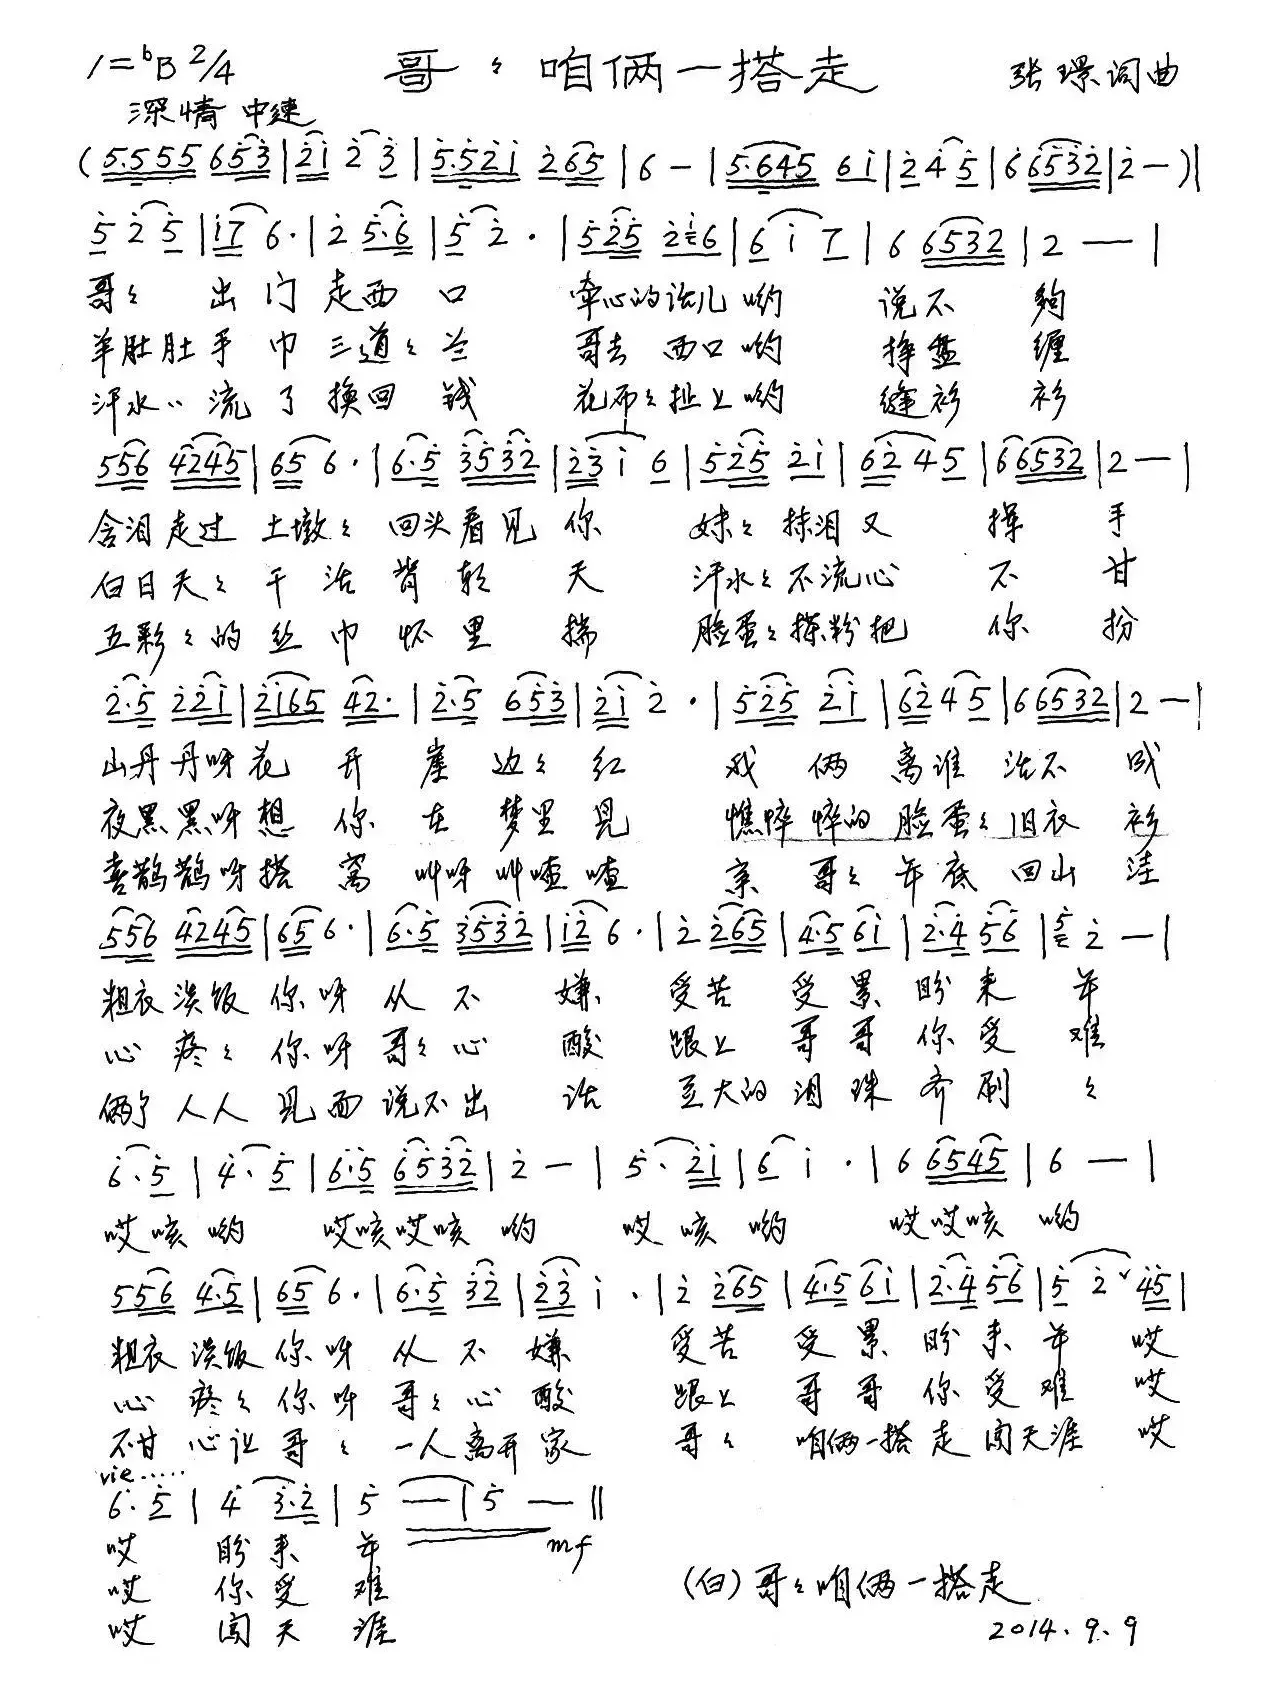 1=ᵇB 2/4 哥〻咱俩一搭走 张璟词曲
深情 中速
(5.555 653|21 2 3|5.521 265|6 -|5.645 61|2 4 5|6 6532|2 -)|
5 2 5|17 6.|2 5.6|5 2.|525 2 6|6 1 7|6 6532|2 --|
哥〻 出门走西口 牵心的话儿哟 说不夠
羊肚肚手巾三道〻兰 哥去西口哟 挣盘缠
汗水〻流了换回钱 花布〻扯上哟 缝衫衫
556 4245|65 6.|6.5 3532|23 1 6|525 21|62 4 5|6 6532|2 --|
含泪走过土墩〻回头看见你 妹〻抹泪又挥手
白日天〻干活背朝天 汗水〻不流心不甘
五彩〻的丝巾怀里揣 脸蛋〻搽粉把你扮
2.5 221|2165 42.|2.5 653|21 2.|525 21|62 4 5|6 6532|2 --|
山丹丹呀花开崖边〻红 我俩离谁活不成
夜黑黑呀想你在梦里见 憔悴悴的脸蛋〻旧衣衫
喜鹊鹊呀搭窝叫呀叫喳喳 亲哥〻年底回山洼
556 4245|65 6.|6.5 3532|12 6.|2 265|4.5 61|2.4 56|5 2 -|
粗衣淡饭你呀从不嫌 受苦受累盼来年
心疼〻你呀哥〻心酸 跟上哥哥你受难
俩个人人见面说不出话 豆大的泪珠齐刷〻
6.5|4.5|6.5 6532|2 -|5.21|6 1.|6 6545|6 --|
哎咳哟 哎咳哎咳哟 哎咳哟 哎哎咳哟
556 4.5|65 6.|6.5 32|23 1.|2 265|4.5 61|2.4 56|5 2 ˅45|
粗衣淡饭你呀从不嫌 受苦受累盼来年 哎
心疼〻你呀哥〻心酸 跟上哥哥你受难 哎
不甘心让哥〻一人离开家 哥〻咱俩一搭走闯天涯 哎
vie.....
6.5|4 3.2|5 --|5 --‖
mf
哎 盼来年
哎 你受难
哎 闯天涯
(白)哥〻咱俩一搭走
2014.9.9